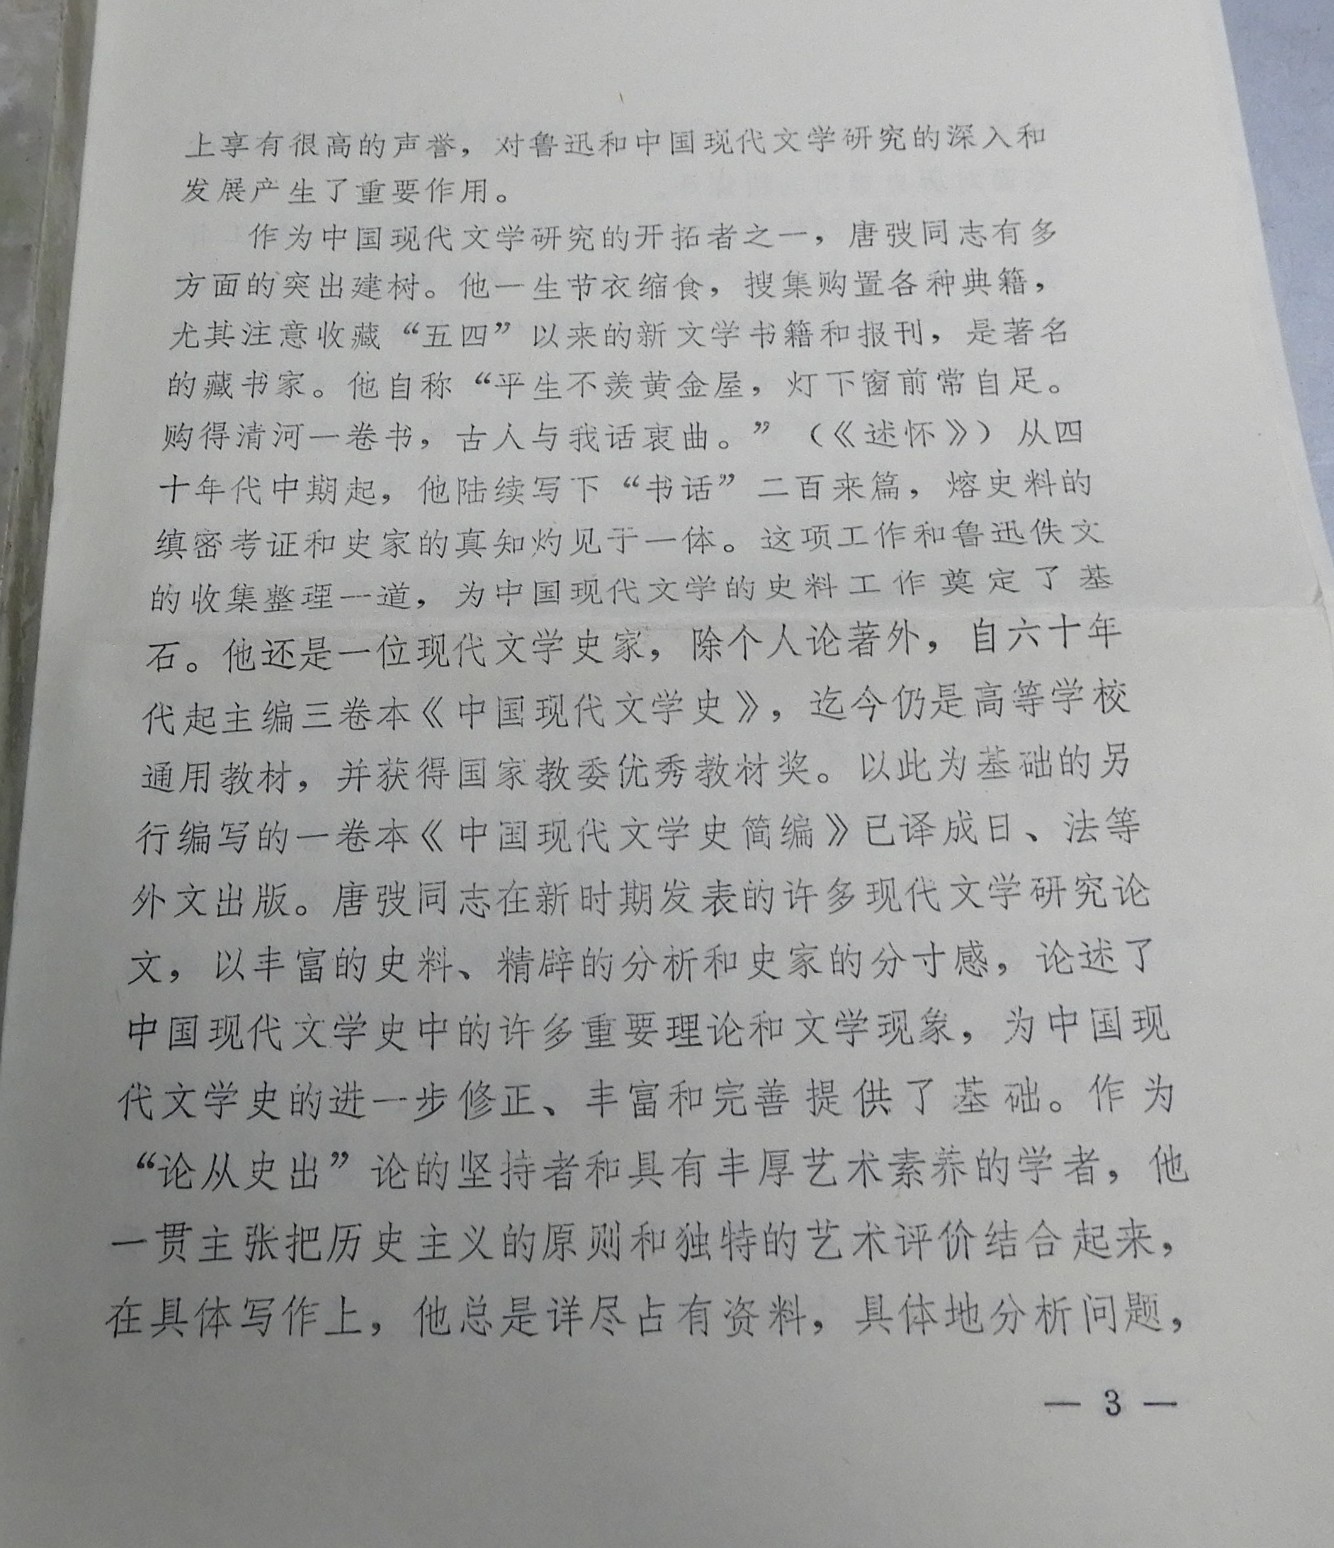 上享有很高的声誉，对鲁迅和中国现代文学研究的深入和
发展产生了重要作用。
作为中国现代文学研究的开拓者之一，唐弢同志有多
方面的突出建树。他一生节衣缩食，搜集购置各种典籍，
尤其注意收藏“五四”以来的新文学书籍和报刊，是著名
的藏书家。他自称“平生不羡黄金屋，灯下窗前常自足。
购得清河一卷书，古人与我话衷曲。”（《述怀》）从四
十年代中期起，他陆续写下“书话”二百来篇，熔史料的
缜密考证和史家的真知灼见于一体。这项工作和鲁迅佚文
的收集整理一道，为中国现代文学的史料工作奠定了基
石。他还是一位现代文学史家，除个人论著外，自六十年
代起主编三卷本《中国现代文学史》，迄今仍是高等学校
通用教材，并获得国家教委优秀教材奖。以此为基础的另
行编写的一卷本《中国现代文学史简编》已译成日、法等
外文出版。唐弢同志在新时期发表的许多现代文学研究论
文，以丰富的史料、精辟的分析和史家的分寸感，论述了
中国现代文学史中的许多重要理论和文学现象，为中国现
代文学史的进一步修正、丰富和完善提供了基础。作为
“论从史出”论的坚持者和具有丰厚艺术素养的学者，他
一贯主张把历史主义的原则和独特的艺术评价结合起来，
在具体写作上，他总是详尽占有资料，具体地分析问题，
— 3 —